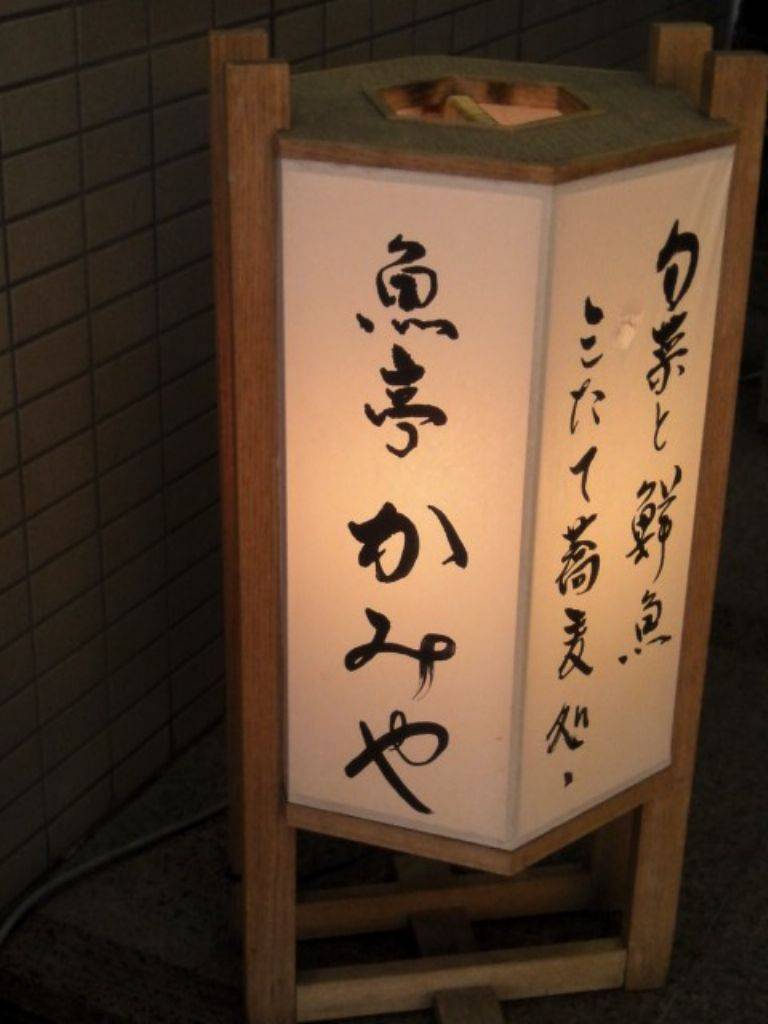 魚亭かみや
旬菜と鮮魚
こたて蕎麦処